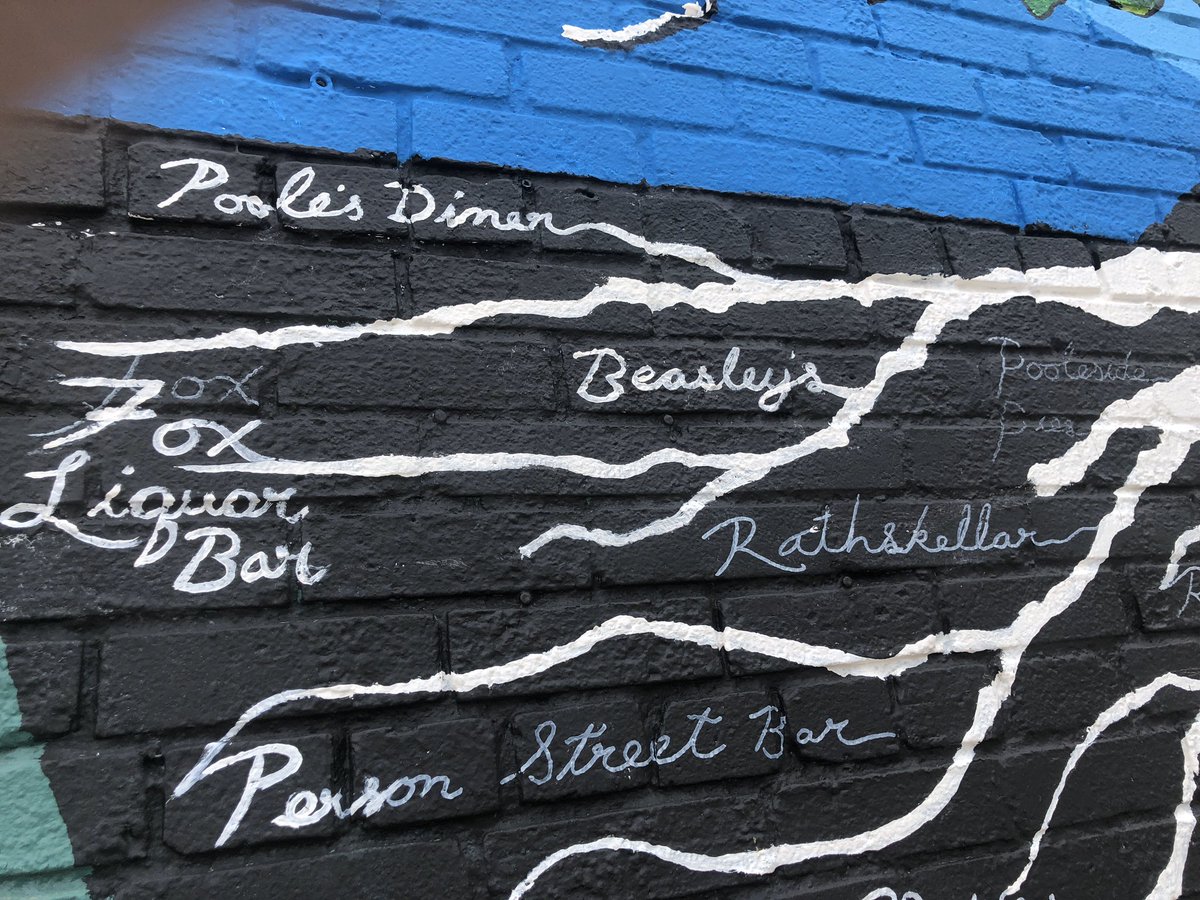 Poole's Diner
Beasley's
Pooleside
Fox
Fox
Liquor
Bar
Rathskellar
Person Street Bar